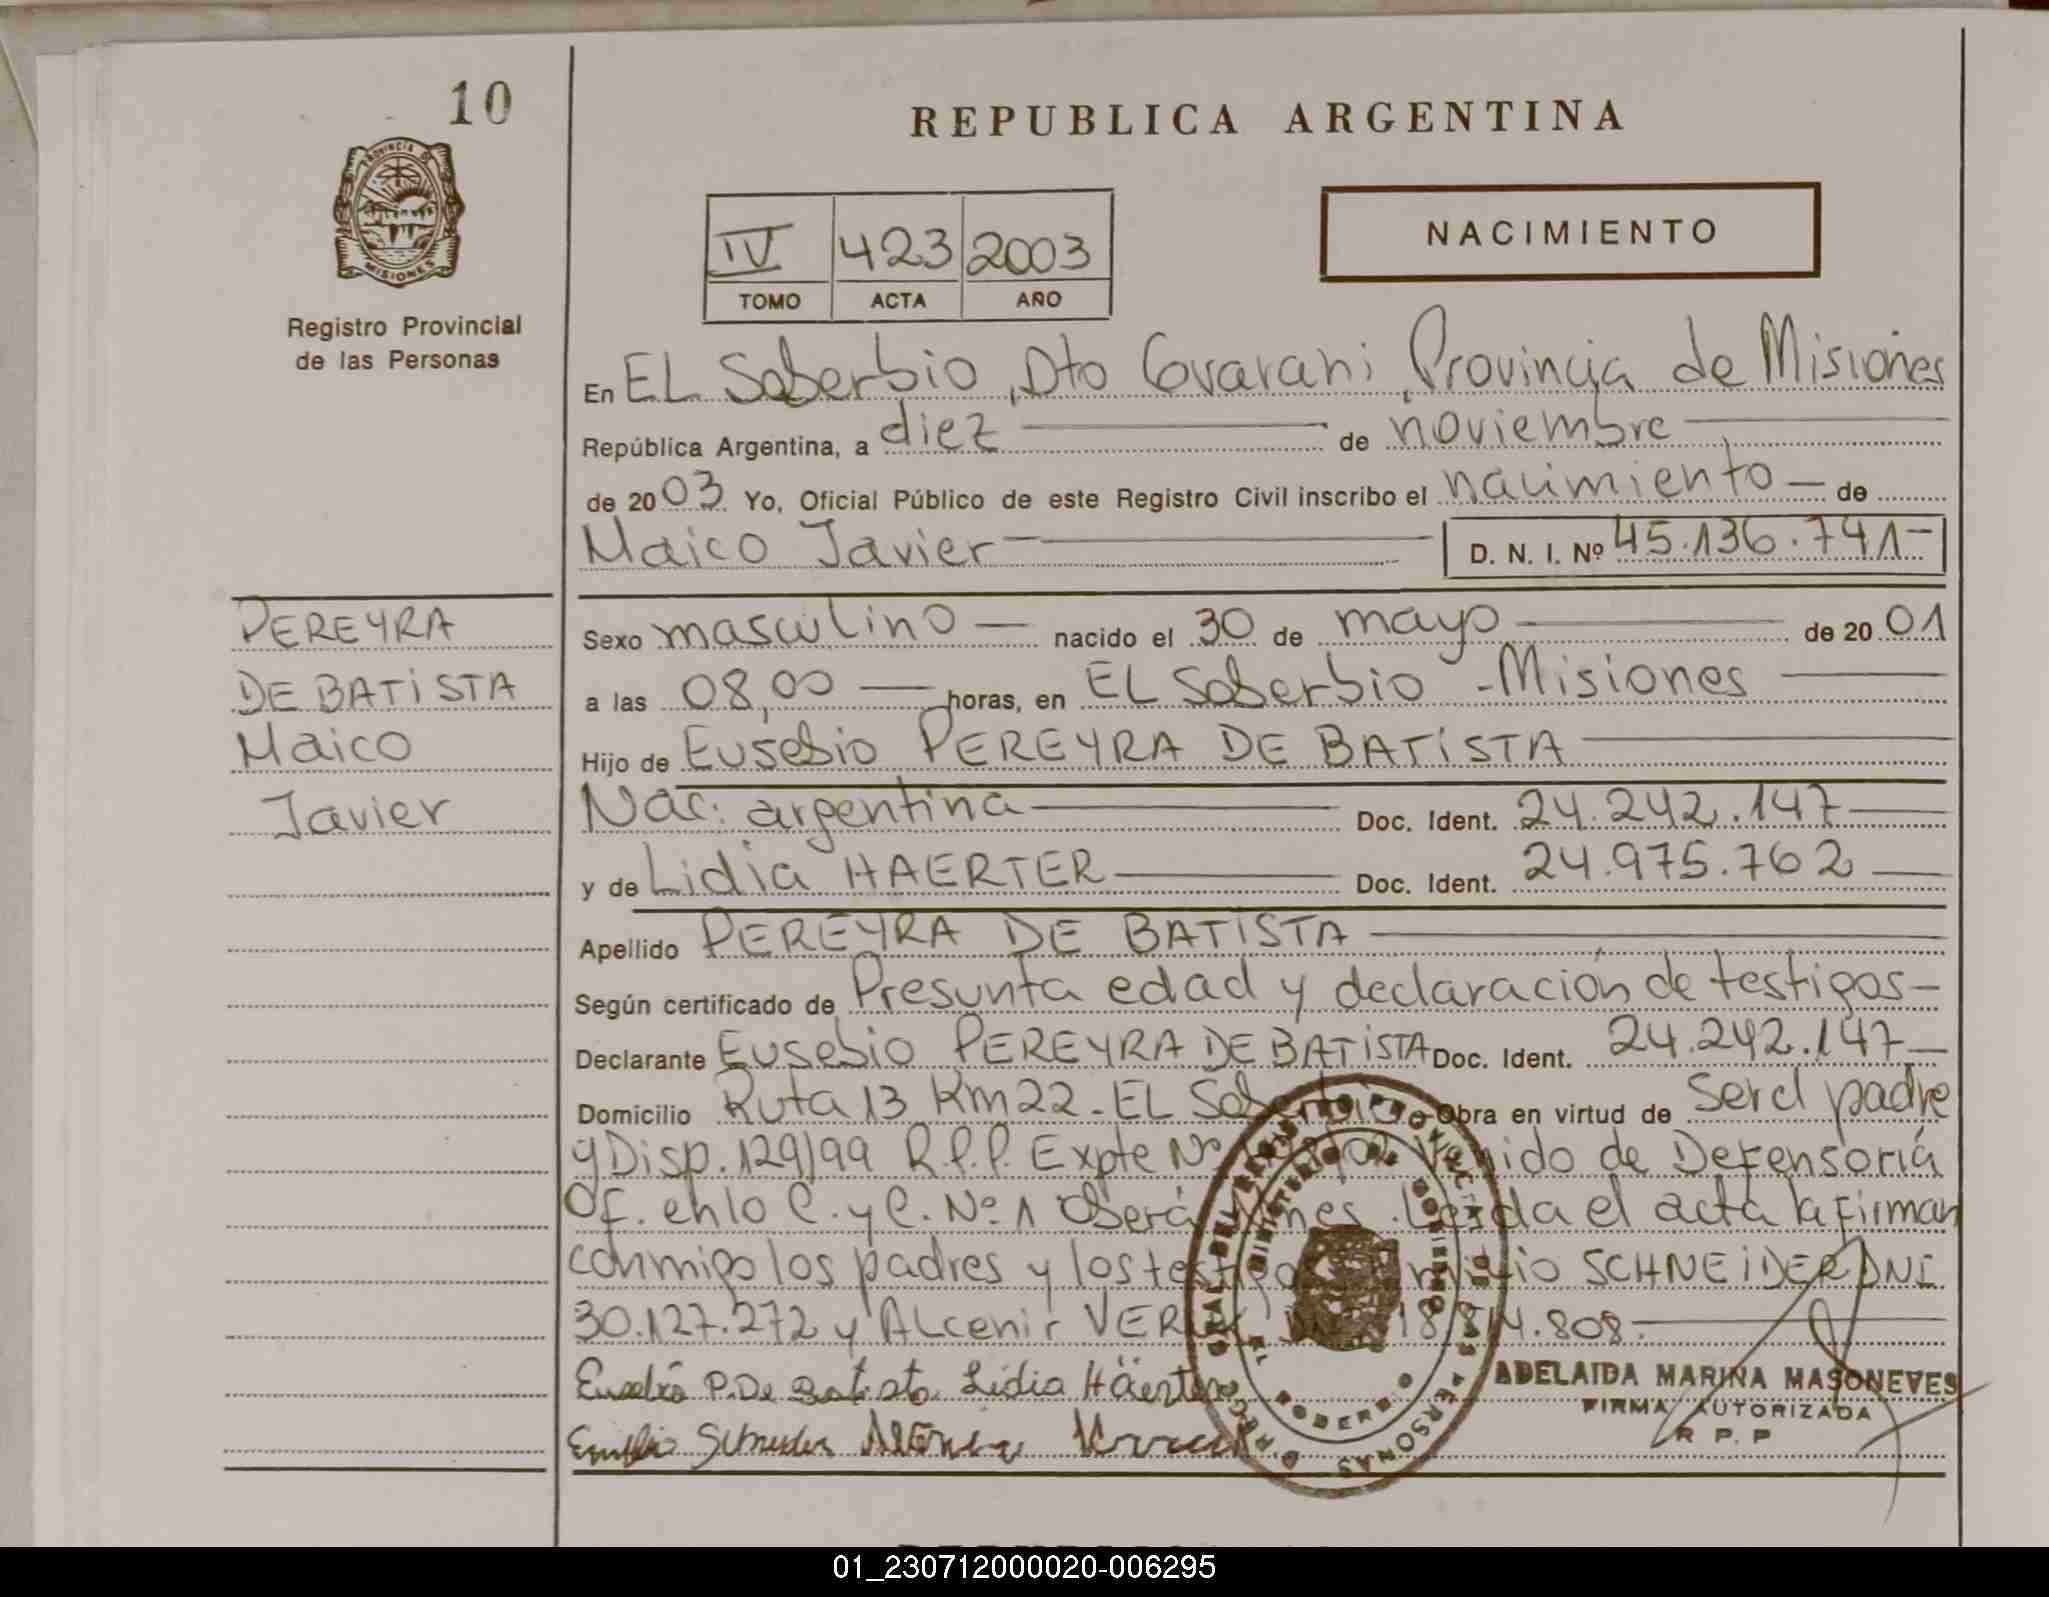 10
REPUBLICA ARGENTINA
PROVINCIA DE
MISIONES
Registro Provincial
de las Personas
NACIMIENTO
IV 423 2003
TOMO ACTA AÑO
En EL Soberbio, Dto Guarani Provincia de Misiones
República Argentina, a diez de noviembre
de 2003 Yo, Oficial Público de este Registro Civil inscribo el nacimiento de
Maico Javier D. N. I. Nº 45.136.741
PEREYRA
DE BATISTA
Maico
Javier
Sexo masculino nacido el 30 de mayo de 2001
a las 08,00 horas, en EL Soberbio - Misiones
Hijo de Eusebio PEREYRA DE BATISTA
Nac: argentina Doc. Ident. 24.242.147
y de Lidia HAERTER Doc. Ident. 24.975.762
Apellido PEREYRA DE BATISTA
Según certificado de Presunta edad y declaración de testigos
Declarante Eusebio PEREYRA DE BATISTA Doc. Ident. 24.242.147
Domicilio Ruta 13 Km 22 - EL Soberbio Obra en virtud de ser el padre
y Disp. 129/99 R.P.P. Expte Nº de Defensoria
Of. en lo C. y C. Nº 1 Oberá Mnes. Leida el acta la firman
conmigo los padres y los testigos SCHNEIDER DNI
30.127.272 y ALcenir 18.814.808.
Eusebio P. De Batista Lidia Häerter
Emilio Schneider
ADELAIDA MARINA MASONEVES
FIRMA AUTORIZADA
R P. P
01_230712000020-006295